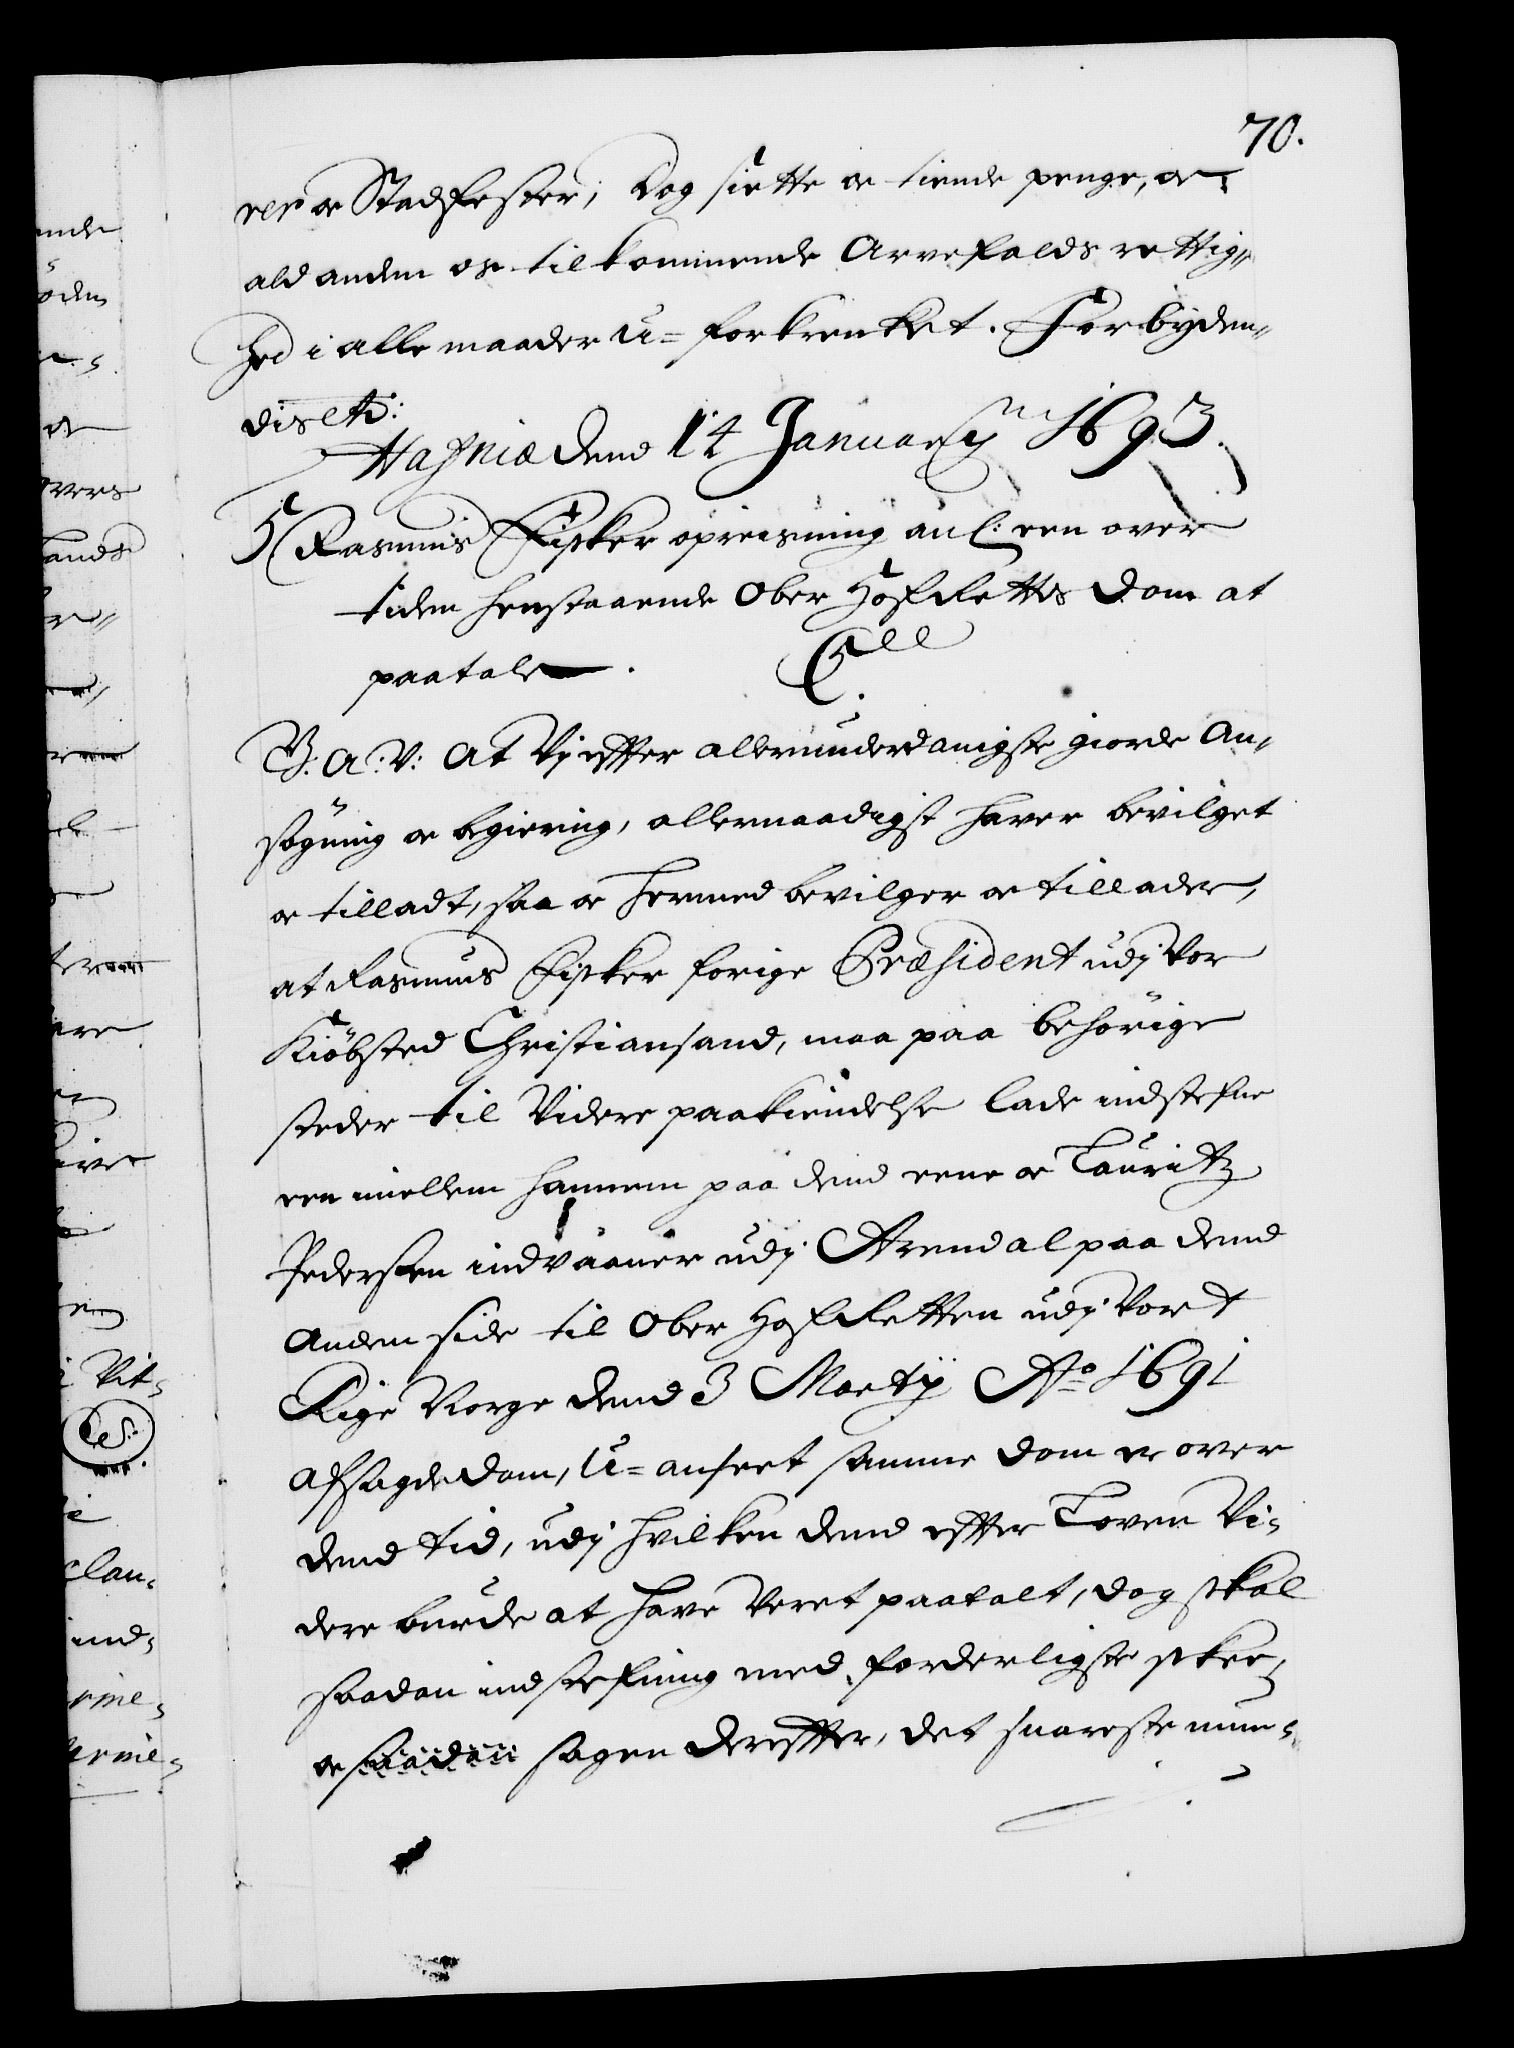 70.
rer oc Stadfester, dog siette oc tiende penge, oc
ald anden os tilkommende Arvefalds rettig„
hed i alle maader U= forkrenket. Forbyden„
dis etc:
Hafniæ dend 14 January 1693.
5 Rasmus Fisker opreisning anl: een over
tiden henstaaende Ober Hof Rettes Dom at
paatale.
C.
V. A: V: At Vi effter allerunderdanigste giorde An„
søgning oc begiering, allernaadigst haver bevilget
oc tilladt, saa oc hermed bevilger oc tillader,
at Rasmus Fisker forige Præsident udj Vor
Kiöbsted Christiansand, maa paa behörige
steder til Videre paakiendelse lade indstefne
een imellem hannem paa dend eene oc Lauritz
Pedersen indvaaner udj Arendal paa dend
anden side til Ober Hof Retten udj Vort
Rige Norge dend 3 Martÿ Ao 1691
afsagde dom, U= anseet samme dom er over
dend tid, udj hvilken dend effter Loven Vi-
dere burde at have veret paatalt, dog skal
saadan indstefning med forderligste skee,
oc saadan sagen dereffter, det snareste mue-
nde
oden
oc
vers
Lands
Vit-
clan-
ind-